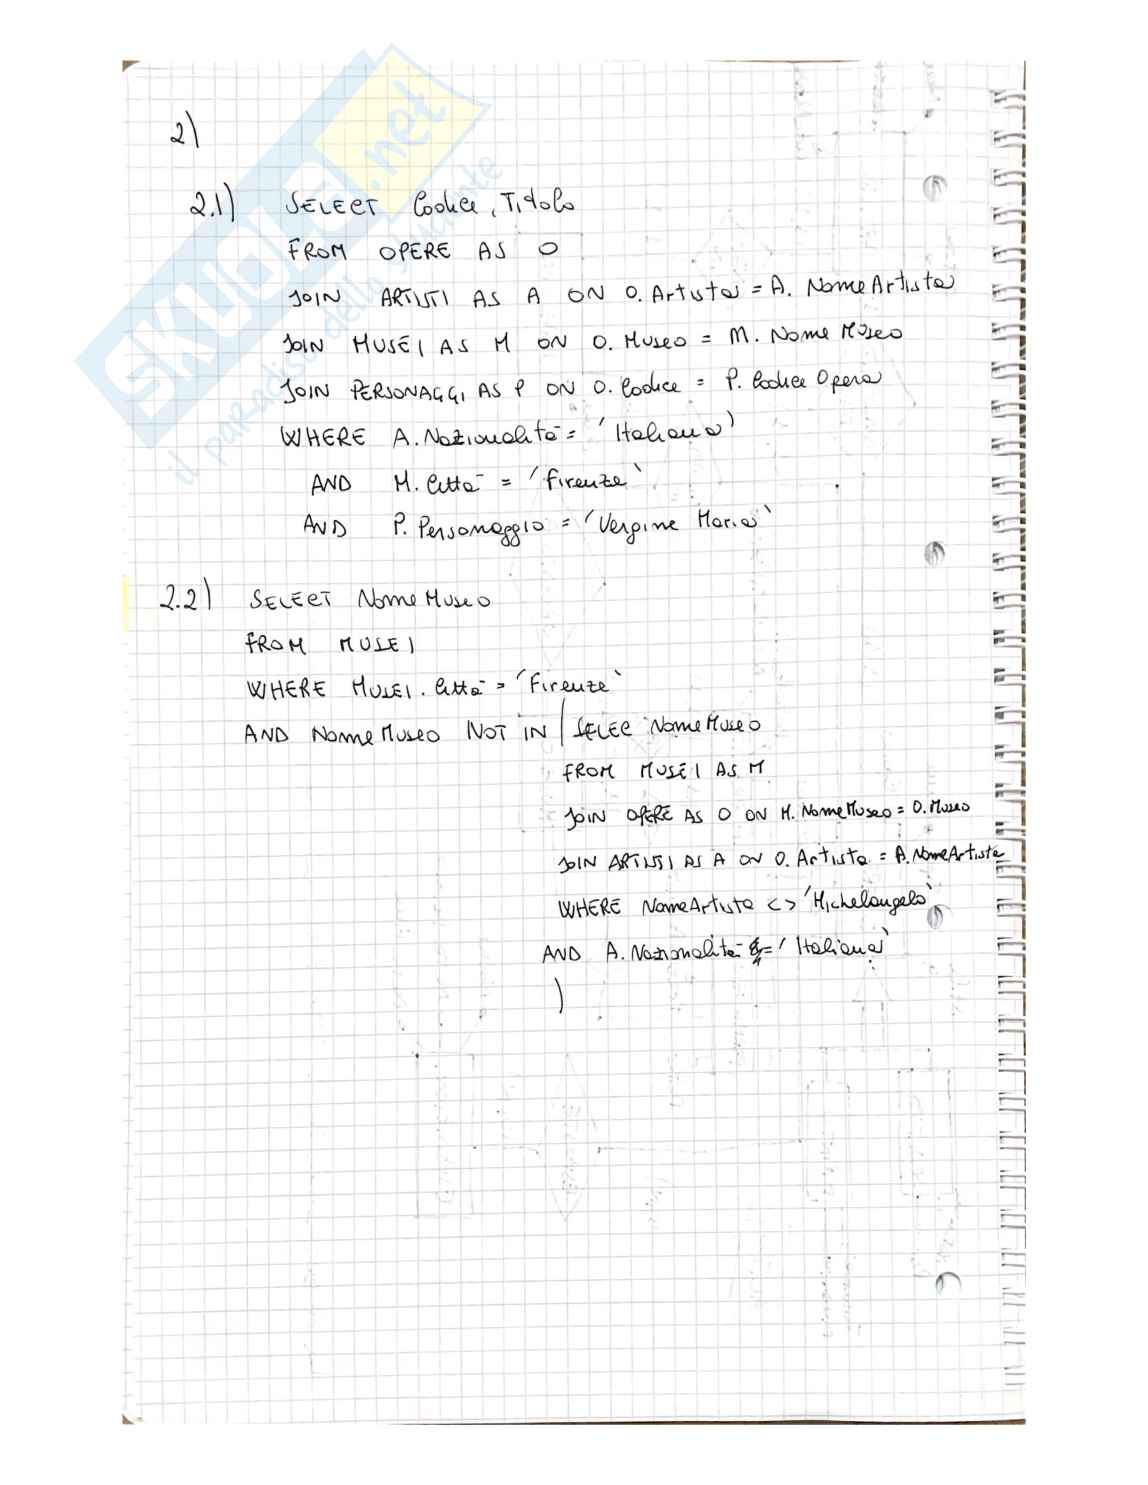 SKUOLA.net
il paradiso dello studente
2)
2.1) SELECT Codice, Titolo
FROM OPERE AS O
JOIN ARTISTI AS A ON O.Artista = A. NomeArtista
JOIN MUSEI AS M ON O. Museo = M. Nome Museo
JOIN PERSONAGGI AS P ON O. Codice = P. Codice Opera
WHERE A. Nazionalità = 'Italiana'
AND M. Città = 'Firenze'
AND P. Personaggio = 'Vergine Maria'
2.2) SELECT Nome Museo
FROM MUSEI
WHERE MUSEI. Città = 'Firenze'
AND Nome Museo NOT IN ( SELEC NomeMuseo
FROM MUSEI AS M
JOIN OPERE AS O ON M. NomeMuseo = O. Museo
JOIN ARTISTI AS A ON O. Artista = A. NomeArtista
WHERE NomeArtista <> 'Michelangelo'
AND A. Nazionalità = 'Italiana'
)